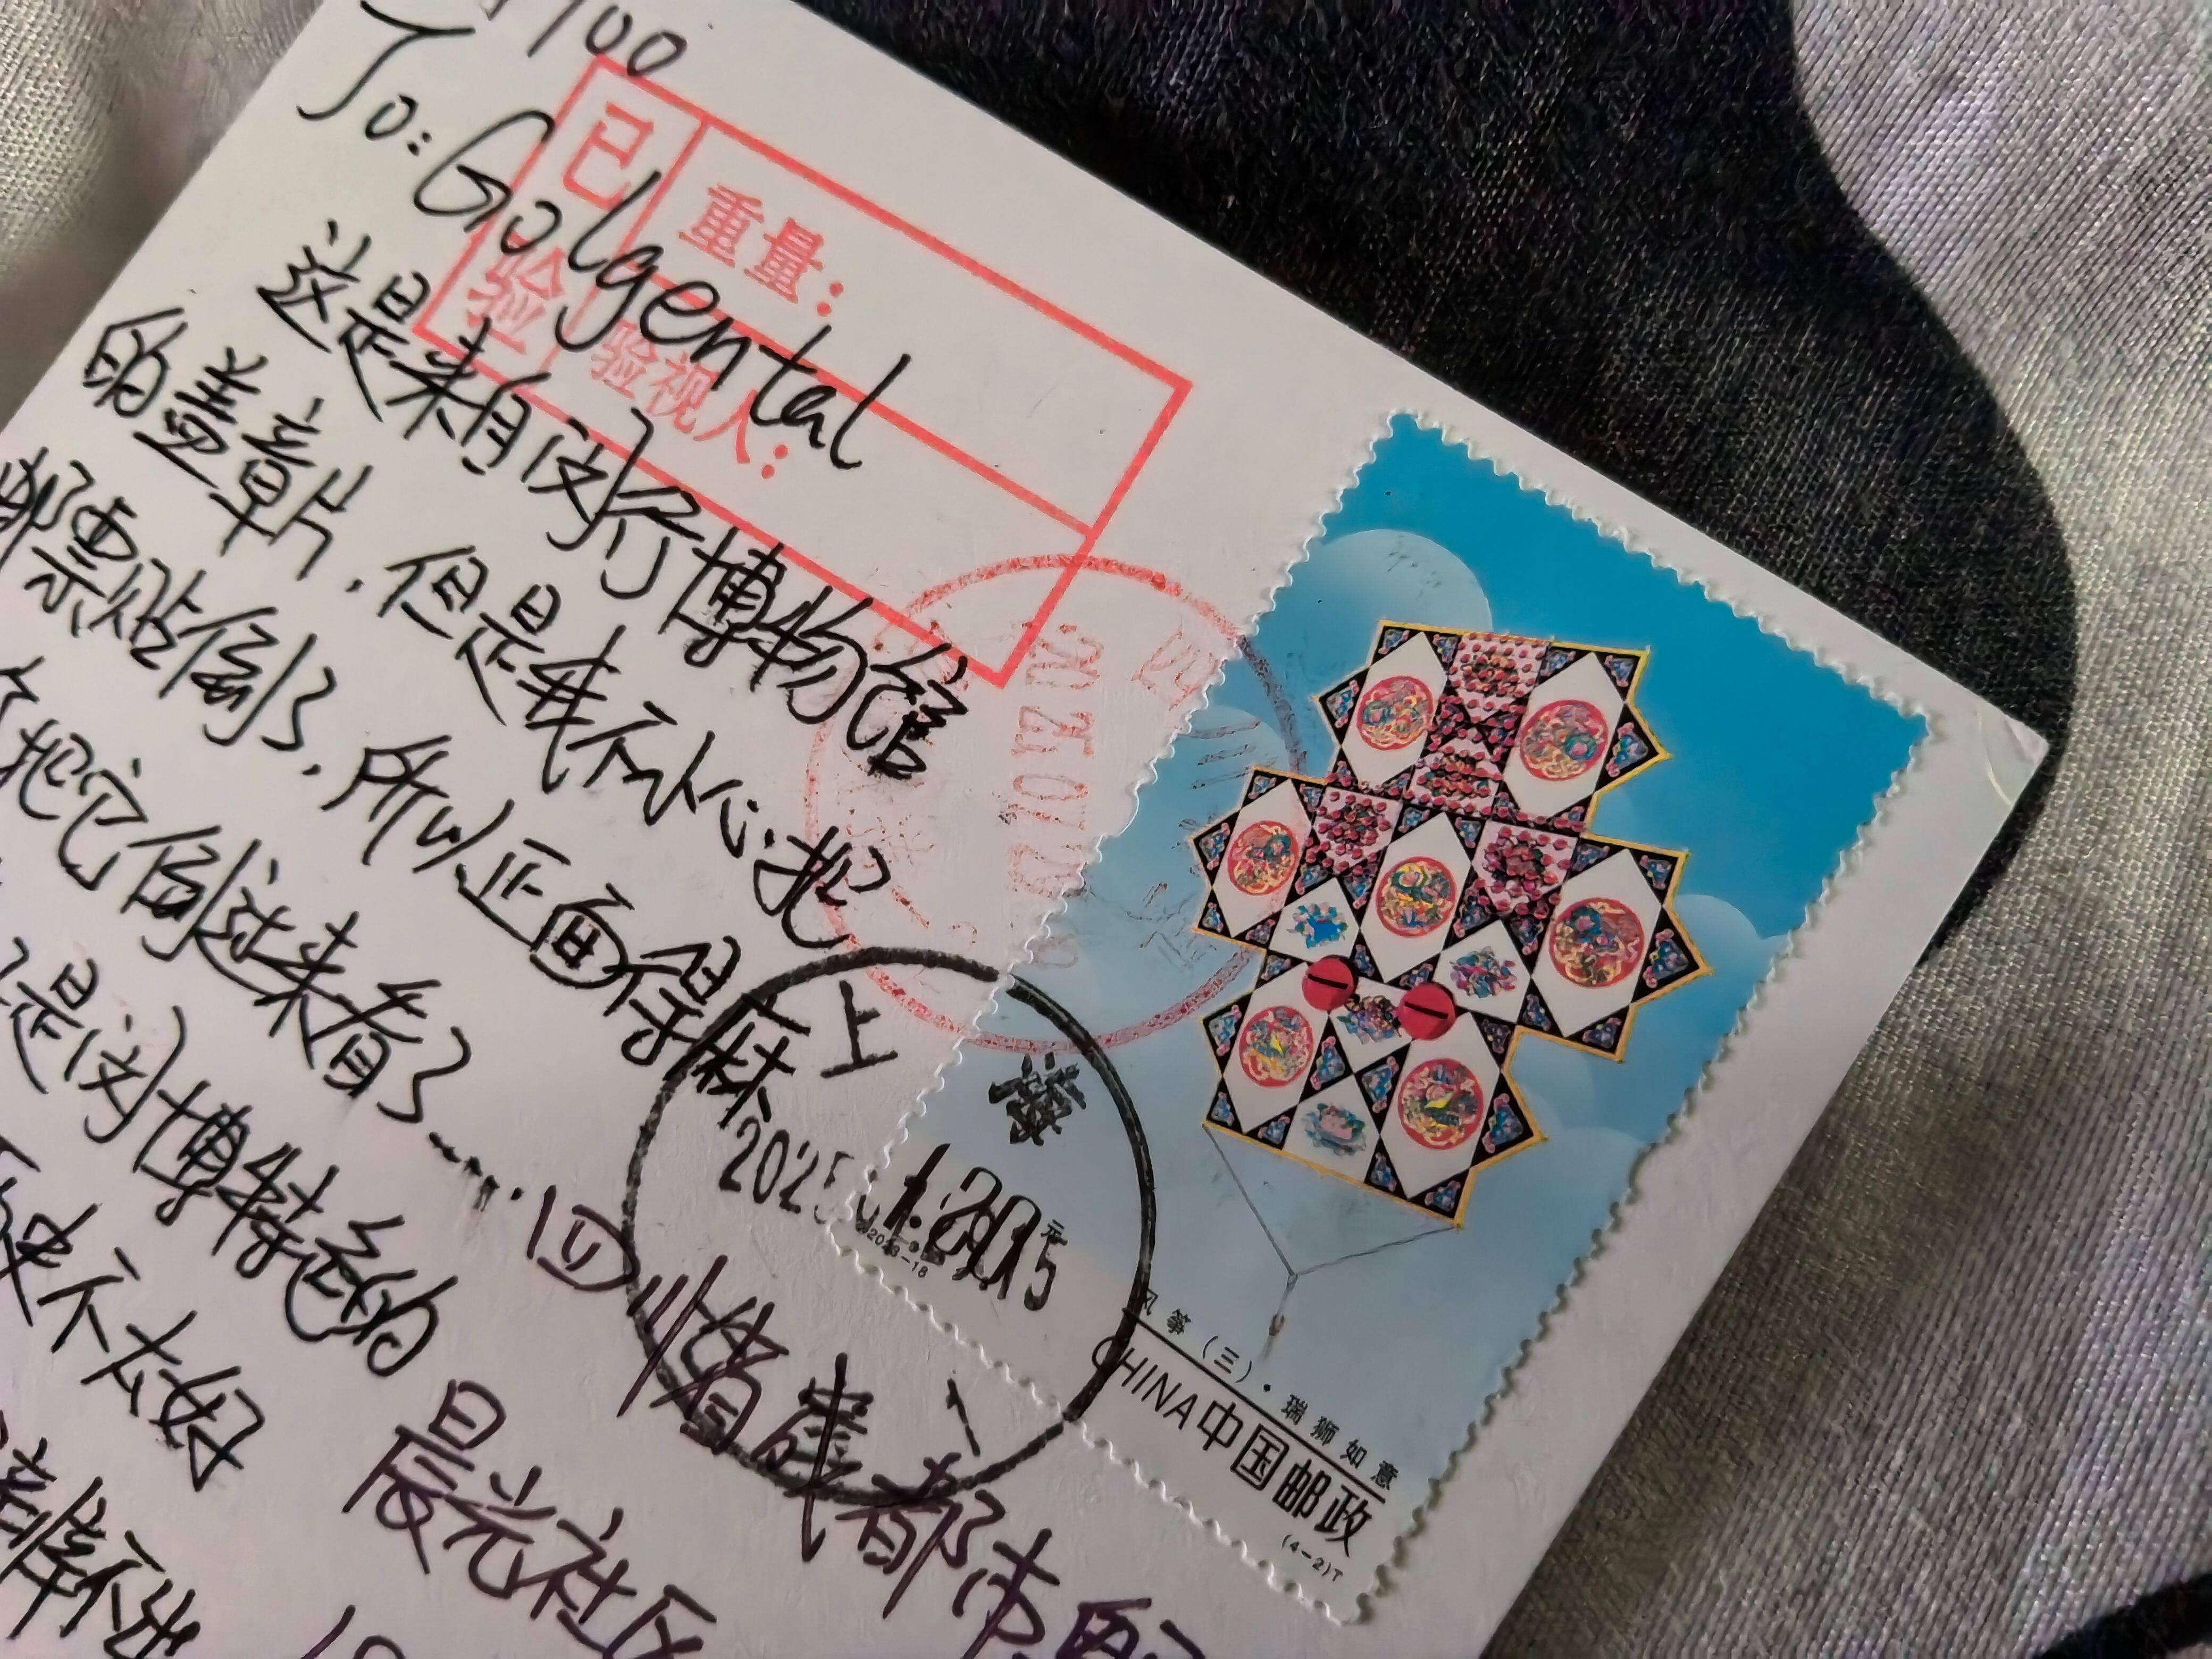 To: Golgental
这是来自闵行博物馆
的盖章片，但是我不小心把
邮票贴倒了，所以正面得麻
把它倒过来看了……
是闵博特色的
不太好
四川省成都市
晨光社区
已验
重量：
验视人：
四川
上海
1.20元
2023-18
风筝（三）·瑞狮如意
CHINA中国邮政
(4-2)T